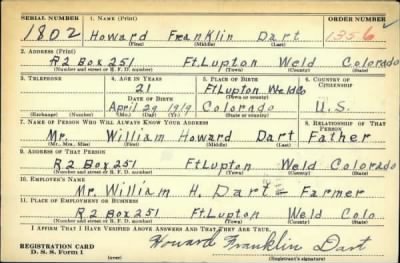 SERIAL NUMBER 1. NAME (Print) ORDER NUMBER
1802 Howard Franklin Dart 1356
(First) (Middle) (Last)
2. ADDRESS (Print)
R2 Box 251 Ft. Lupton Weld Colorado
(Number and street or R. F. D. number) (Town) (County) (State)
3. TELEPHONE 4. AGE IN YEARS 5. PLACE OF BIRTH 6. COUNTRY OF CITIZENSHIP
21 Ft Lupton Weld Co
(Town or county)
DATE OF BIRTH
April 29 1919 Colorado U.S.
(Exchange) (Number) (Mo.) (Day) (Yr.) (State or country)
7. NAME OF PERSON WHO WILL ALWAYS KNOW YOUR ADDRESS 8. RELATIONSHIP OF THAT PERSON
Mr. William Howard Dart Father
(Mr., Mrs., Miss) (First) (Middle) (Last)
9. ADDRESS OF THAT PERSON
R2 Box 251 Ft Lupton Weld Colorado
(Number and street or R. F. D. number) (Town) (County) (State)
10. EMPLOYER'S NAME
Mr. William H. Dart = Farmer
11. PLACE OF EMPLOYMENT OR BUSINESS
R2 Box 251 Ft Lupton Weld Colo
(Number and street or R. F. D. number) (Town) (County) (State)
I AFFIRM THAT I HAVE VERIFIED ABOVE ANSWERS AND THAT THEY ARE TRUE.
REGISTRATION CARD
D. S. S. Form 1 (over) Howard Franklin Dart
(Signature)